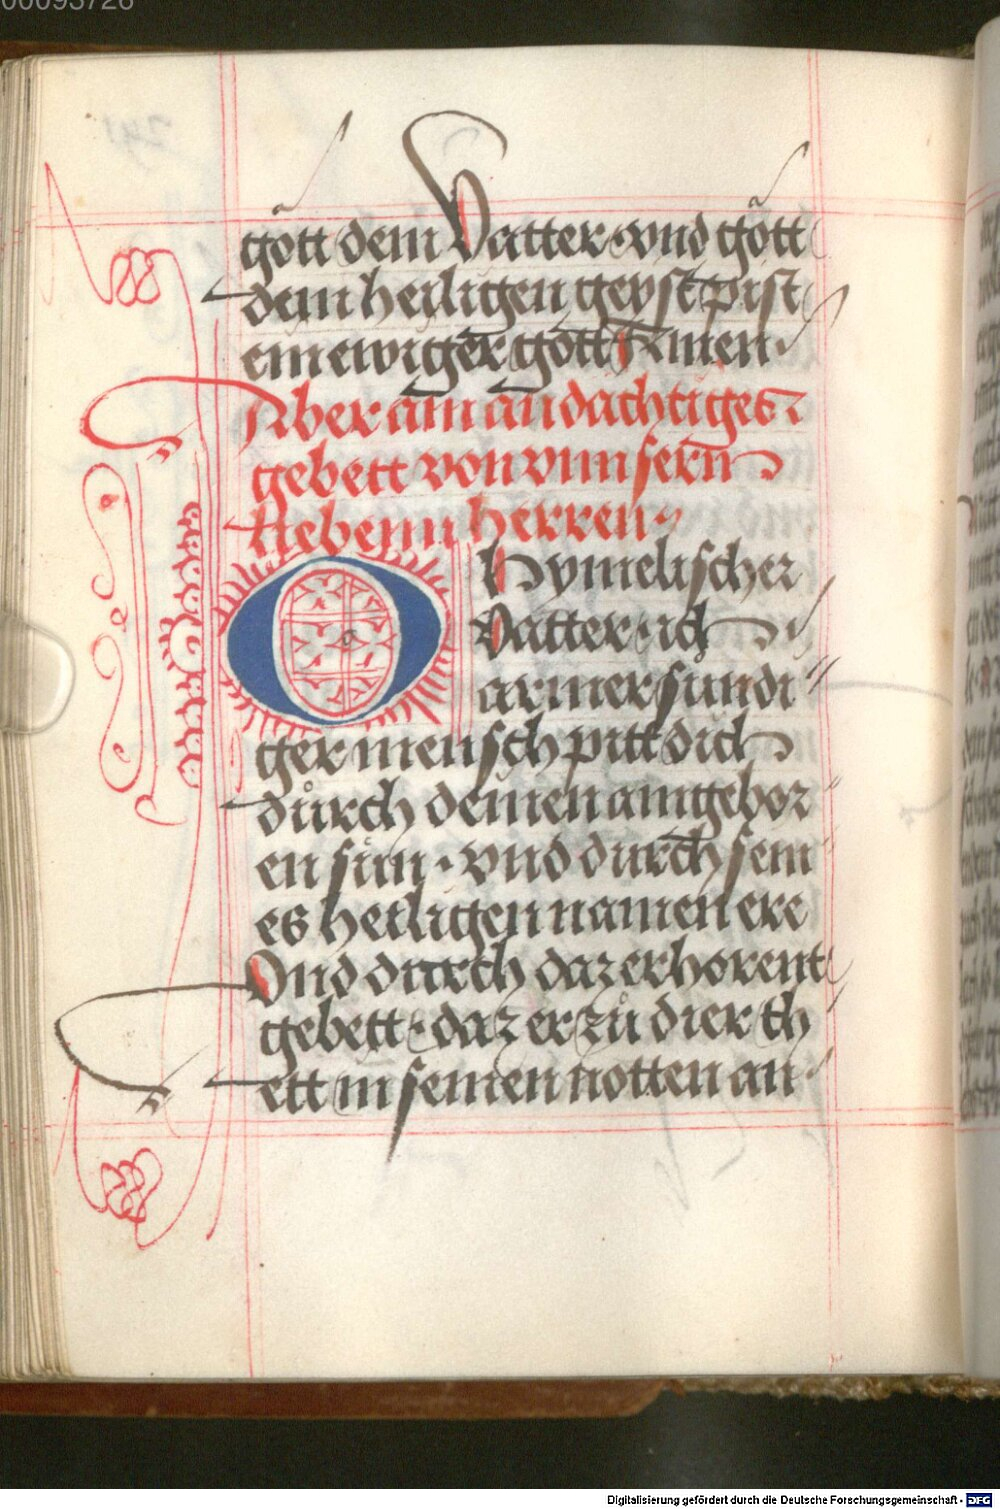 00093726
gott dem Vatter · vnd gott
dem heiligen geyst pist
ein ewiger gott Amen ·
Aber ain andachtiges
gebett von vnnsern
liebenn herren
O Hymelischer
Vatter · ich
armer sundi
ger mensch pitt dich
dŭrch deinen aingebor
en sun · vnd durch sein
es heiligen namen ere
Vnd durch daz erhorent
gebett · daz er zŭ dier th
ett in seinen notten an
Digitalisierung gefördert durch die Deutsche Forschungsgemeinschaft - DFG